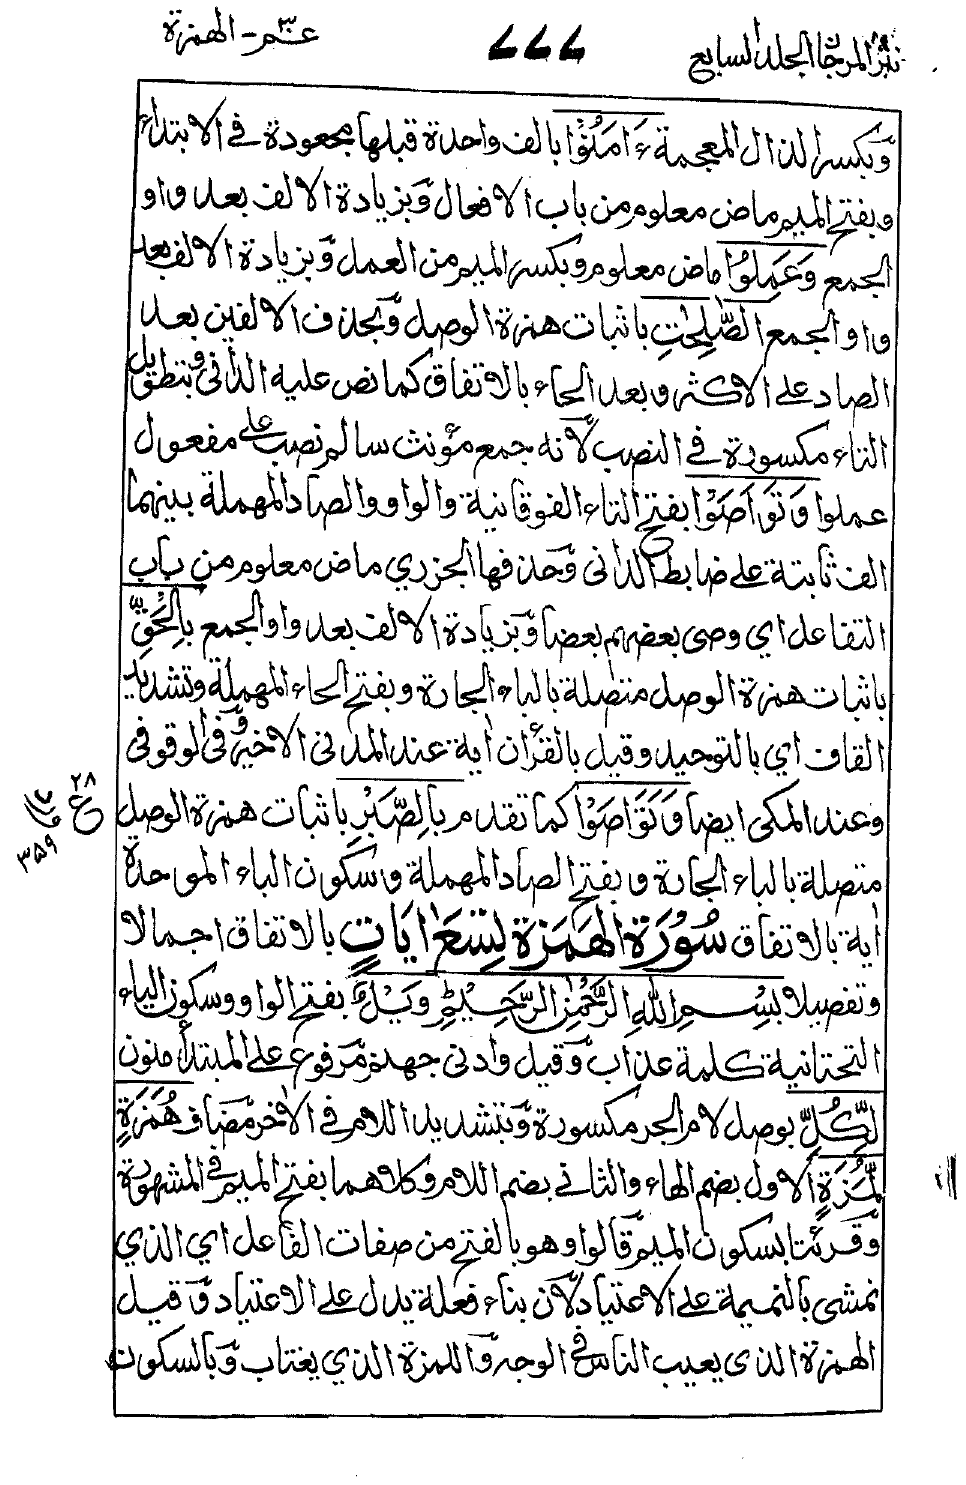 نثر المرجان الجلد السابع
٧٧٧
عم - الهمزة
وبكسر الذال المعجمة ءَامَنُوْا بالف واحدة قبلها مجعودة في الابتداء
وبفتح الميم ماض معلوم من باب الافعال وبزيادة الالف بعد واو
الجمع وَعَمِلُوا ماض معلوم وبكسر الميم من العمل وبزيادة الالف بعد
واو الجمع الصّٰلِحٰتِ باثبات همزة الوصل وبحذف الالفين بعد
الصاد على الاكثر وبعد الحاء بالاتفاق كما نص عليه الداني وبتطويل
التاء مكسورة في النصب لانه جمع مؤنث سالم نصب على مفعول
عملوا وَتَوَاصَوْا بفتح التاء الفوقانية والواو والصاد المهملة بينهما
الف ثابتة على ضابط الداني وحذفها الجزري ماض معلوم من باب
التفاعل اي وصى بعضهم بعضا وبزيادة الالف بعد واو الجمع بِالْحَقِّ
باثبات همزة الوصل متصلة بالباء الجارة وبفتح الحاء المهملة وتشديد
القاف اي بالتوحيد وقيل بالقرأن أية عند المدني الاخير وفي الوقوف
وعند المكي ايضا وَتَوَاصَوْا كما تقدم بِالصَّبْرِ باثبات همزة الوصل
متصلة بالباء الجارة وبفتح الصاد المهملة وسكون الباء الموحدة
أية بالاتفاق سُوْرَةُ الْهُمَزَةِ تِسْعُ اٰيَاتٍ بالاتفاق اجمالا
وتفصيلا بِسْمِ اللّٰهِ الرَّحْمٰنِ الرَّحِيْمِ وَيْلٌ بفتح الواو وسكون الياء
التحتانية كلمة عذاب وقيل وادٍ في جهنم مرفوع على المبتدأ منون
لِّكُلِّ بوصل لام الجر مكسورة وبتشديد اللام في الأخر مضاف هُمَزَةٍ
لُّمَزَةٍ الاول بضم الهاء والثاني بضم اللام وكلاهما بفتح الميم في المشهورة
وقرئتا بسكون الميم قالوا وهو بالفتح من صفات الفاعل اي الذي
يمشي بالنميمة على الاعتياد لأن بناء فعلة يدل على الاعتياد وقيل
الهمزة الذي يعيب الناس في الوجه واللمزة الذي يغتاب وبالسكون
ع ٢٨
٣٥٩